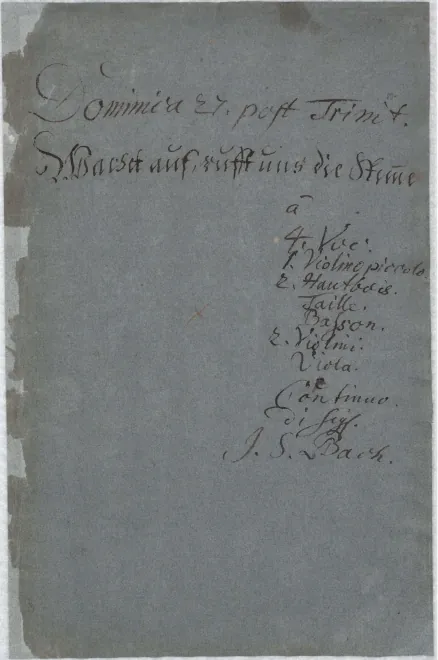 Dominica 27. post Trinit.
Wachet auf, rufft uns die Stim̅e
à
4. Voc.
1. Violino piccolo.
2. Hautbois.
Taille.
Basson.
2. Violini.
Viola.
e
Continuo.
di Sigl.
J. S. Bach.